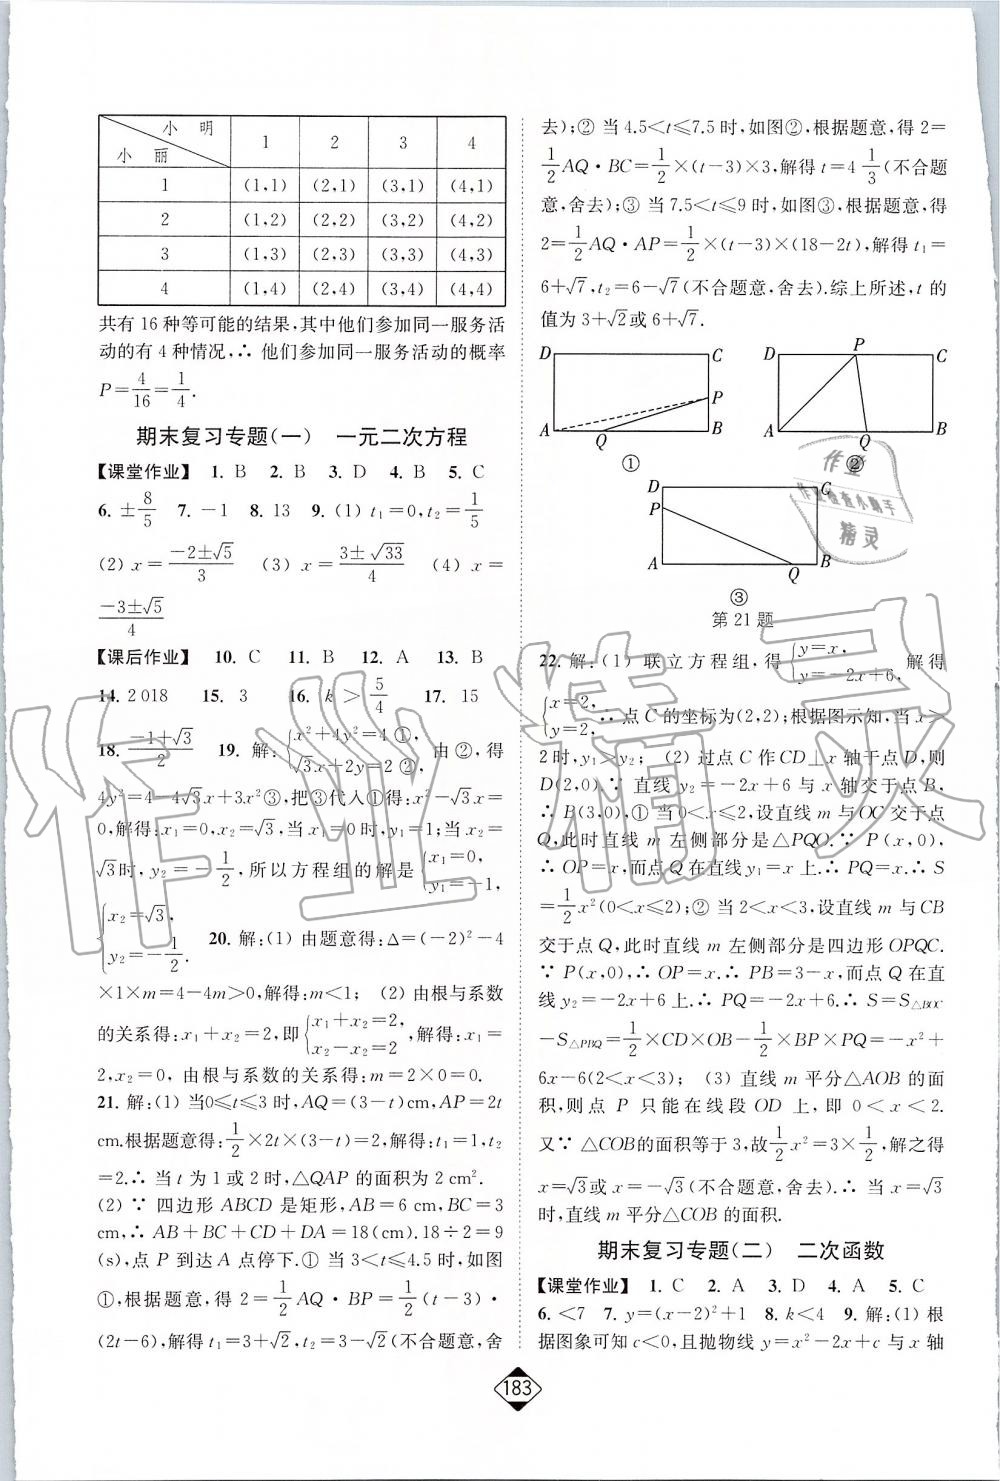 小 明
小 丽
1 2 3 4
1 (1,1) (2,1) (3,1) (4,1)
2 (1,2) (2,2) (3,2) (4,2)
3 (1,3) (2,3) (3,3) (4,3)
4 (1,4) (2,4) (3,4) (4,4)
共有 16 种等可能的结果,其中他们参加同一服务活
动的有 4 种情况,∴ 他们参加同一服务活动的概率
P=4/16=1/4.
期末复习专题(一) 一元二次方程
【课堂作业】 1. B 2. B 3. D 4. B 5. C
6. ±8/5 7. -1 8. 13 9. (1) t₁=0, t₂=1/5
(2) x=(-2±√5)/3 (3) x=(3±√33)/4 (4) x=
(-3±√5)/4
【课后作业】 10. C 11. B 12. A 13. B
14. 2 018 15. 3 16. k>5/4 17. 15
18. (-1+√3)/2 19. 解:{x²+4y²=4 ①, √3x+2y=2 ②, 由 ②,得
4y²=4-4√3x+3x² ③,把③代入①得:x²-√3x=
0,解得:x₁=0,x₂=√3,当 x₁=0 时,y₁=1;当 x₂=
√3时,y₂=-1/2,所以方程组的解是{x₁=0, y₁=-1,
{x₂=√3, y₂=-1/2. 20. 解:(1) 由题意得:Δ=(-2)²-4
×1×m=4-4m>0,解得:m<1; (2) 由根与系数
的关系得:x₁+x₂=2,即{x₁+x₂=2, x₂-x₂=2 ,解得:x₁=
2,x₂=0, 由根与系数的关系得:m=2×0=0.
21. 解:(1) 当0≤t≤3 时,AQ=(3-t)cm,AP=2t
cm.根据题意得:1/2×2t×(3-t)=2,解得:t₁=1,t₂
=2.∴ 当 t 为 1 或 2 时,△QAP 的面积为 2 cm².
(2) ∵ 四边形 ABCD 是矩形,AB=6 cm,BC=3
cm,∴ AB+BC+CD+DA=18(cm).18÷2=9
(s),点 P 到达 A 点停下.① 当 3<t≤4.5 时,如图
①,根据题意,得 2=1/2AQ·BP=1/2(t-3)·
(2t-6),解得 t₁=3+√2,t₂=3-√2(不合题意,舍
去);② 当 4.5<t≤7.5 时,如图②,根据题意,得 2=
1/2AQ·BC=1/2×(t-3)×3,解得 t=4 1/3(不合题
意,舍去);③ 当 7.5<t≤9 时,如图③,根据题意,得
2=1/2AQ·AP=1/2×(t-3)×(18-2t),解得 t₁=
6+√7,t₂=6-√7(不合题意,舍去).综上所述,t 的
值为 3+√2或 6+√7.
D C P A Q B
①
D P C A Q B
②
D C P A Q B
③
第 21 题
22. 解:(1) 联立方程组,得{y=x, y=-2x+6, 解得
{x=2, y=2, ∴ 点 C 的坐标为(2,2);根据图示知,当 x>
2时,y₁>y₂; (2) 过点 C 作 CD⊥x 轴于点 D,则
D(2,0).∵ 直线 y₂=-2x+6 与 x 轴交于点 B,
∴ B(3,0),① 当 0<x≤2,设直线 m 与 OC 交于点
Q,此时直线 m 左侧部分是△PQO.∵ P(x,0),
∴ OP=x,而点 Q 在直线 y₁=x 上.∴ PQ=x.∴ S=
1/2x²(0<x≤2);② 当 2<x<3,设直线 m 与 CB
交于点 Q,此时直线 m 左侧部分是四边形 OPQC.
∵ P(x,0),∴ OP=x.∴ PB=3-x,而点 Q 在直
线 y₂=-2x+6 上.∴ PQ=-2x+6.∴ S=S△BOC
-S△PBQ=1/2×CD×OB-1/2×BP×PQ=-x²+
6x-6(2<x<3); (3) 直线 m 平分△AOB 的面
积,则点 P 只能在线段 OD 上,即 0<x<2.
又∵ △COB的面积等于 3,故1/2x²=3×1/2,解之得
x=√3或 x=-√3(不合题意,舍去).∴ 当 x=√3
时,直线 m 平分△COB 的面积.
期末复习专题(二) 二次函数
【课堂作业】 1. C 2. A 3. D 4. A 5. C
6. <7 7. y=(x-2)²+1 8. k<4 9. 解:(1) 根
据图象可知 c<0,且抛物线 y=x²-2x+c 与 x 轴
183
作业精灵
作业
作业检查小助手
精灵